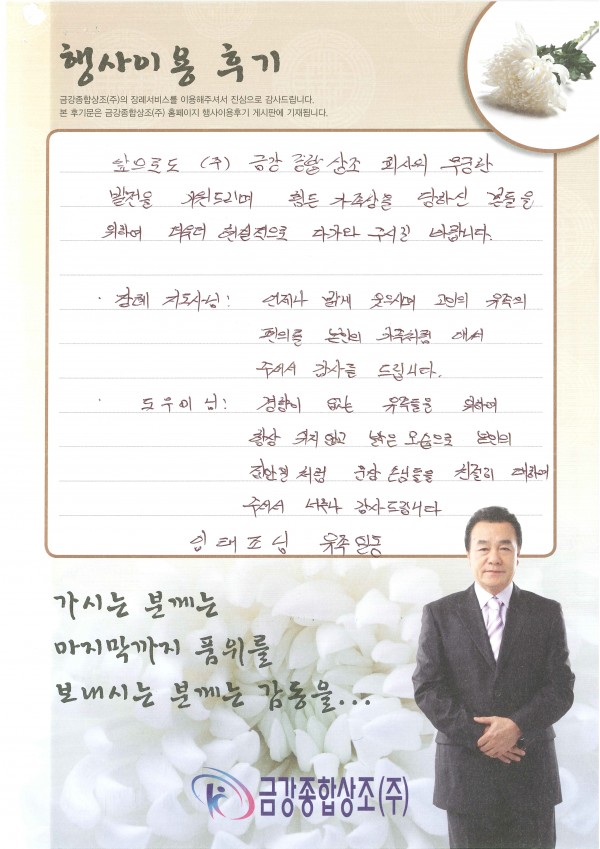 행사이용 후기
금강종합상조(주)의 장례서비스를 이용해주셔서 진심으로 감사드립니다.
본 후기문은 금강종합상조(주) 홈페이지 행사이용후기 게시판에 기재됩니다.
앞으로도 (주) 금강 종합 상조 회사의 무궁한
발전을 기원드리며 힘든 가족상을 당하신 분들을
위하여 더욱더 헌신적으로 다가와 주시길 바랍니다.
· 장례 지도사님: 언제나 밝게 웃으시며 고인의 유족의
편의를 본인의 가족처럼 해서
주셔서 감사를 드립니다.
· 도우미님: 경황이 없는 유족들을 위하여
항상 쉬지않고 밝은 모습으로 본인의
집안일처럼 문상 손님들을 친절히 대하여
주셔서 너무나 감사드립니다
임태조님 유족일동
가시는 분께는
마지막까지 품위를
보내시는 분께는 감동을...
금강종합상조(주)